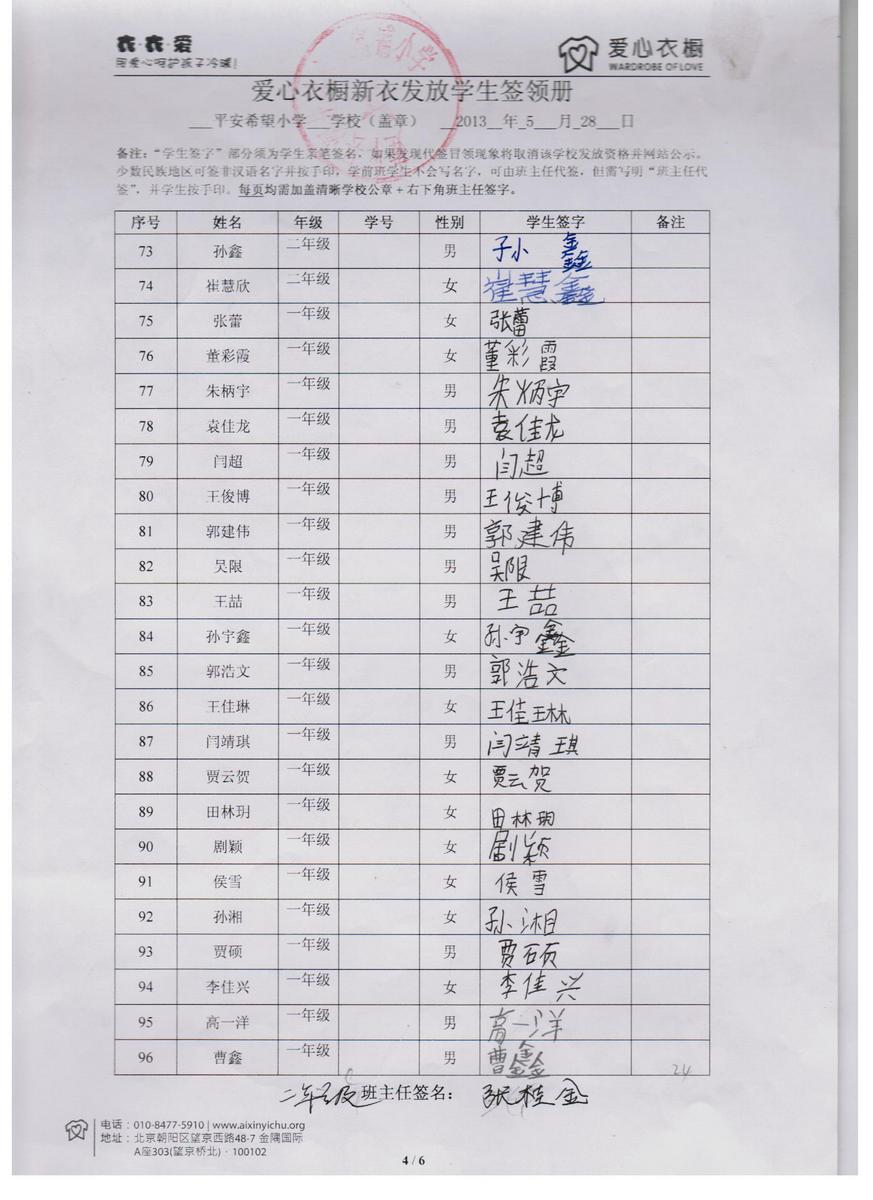 衣·衣·爱
用爱心呵护孩子冷暖!
爱心衣橱
WARDROBE OF LOVE
爱心衣橱新衣发放学生签领册
___平安希望小学___学校（盖章） __2013__年_5___月_28___日
备注：“学生签字”部分须为学生亲笔签名，如果发现代签冒领现象将取消该学校发放资格并网站公示。
少数民族地区可签非汉语名字并按手印，学前班学生不会写名字，可由班主任代签，但需写明“班主任代
签”，并学生按手印。每页均需加盖清晰学校公章+右下角班主任签字。
序号 姓名 年级 学号 性别 学生签字 备注
73 孙鑫 二年级 男 孙鑫
74 崔慧欣 二年级 女 崔慧鑫
75 张蕾 一年级 女 张蕾
76 董彩霞 一年级 女 董彩霞
77 朱柄宇 一年级 男 朱炳宇
78 袁佳龙 一年级 男 袁佳龙
79 闫超 一年级 男 闫超
80 王俊博 一年级 男 王俊博
81 郭建伟 一年级 男 郭建伟
82 吴限 一年级 男 吴限
83 王喆 一年级 男 王喆
84 孙宇鑫 一年级 女 孙宇鑫
85 郭浩文 一年级 男 郭浩文
86 王佳琳 一年级 女 王佳琳
87 闫靖琪 一年级 男 闫靖琪
88 贾云贺 一年级 女 贾云贺
89 田林玥 一年级 女 田林玥
90 剧颖 一年级 女 剧颖
91 侯雪 一年级 女 侯雪
92 孙湘 一年级 女 孙湘
93 贾硕 一年级 男 贾硕
94 李佳兴 一年级 女 李佳兴
95 高一洋 一年级 男 高一洋
96 曹鑫 一年级 男 曹鑫 24
二年级 班主任签名： 张桂金
电话：010-8477-5910 | www.aixinyichu.org
地址：北京朝阳区望京西路48-7 金隅国际
A座303(望京桥北)·100102
4 / 6